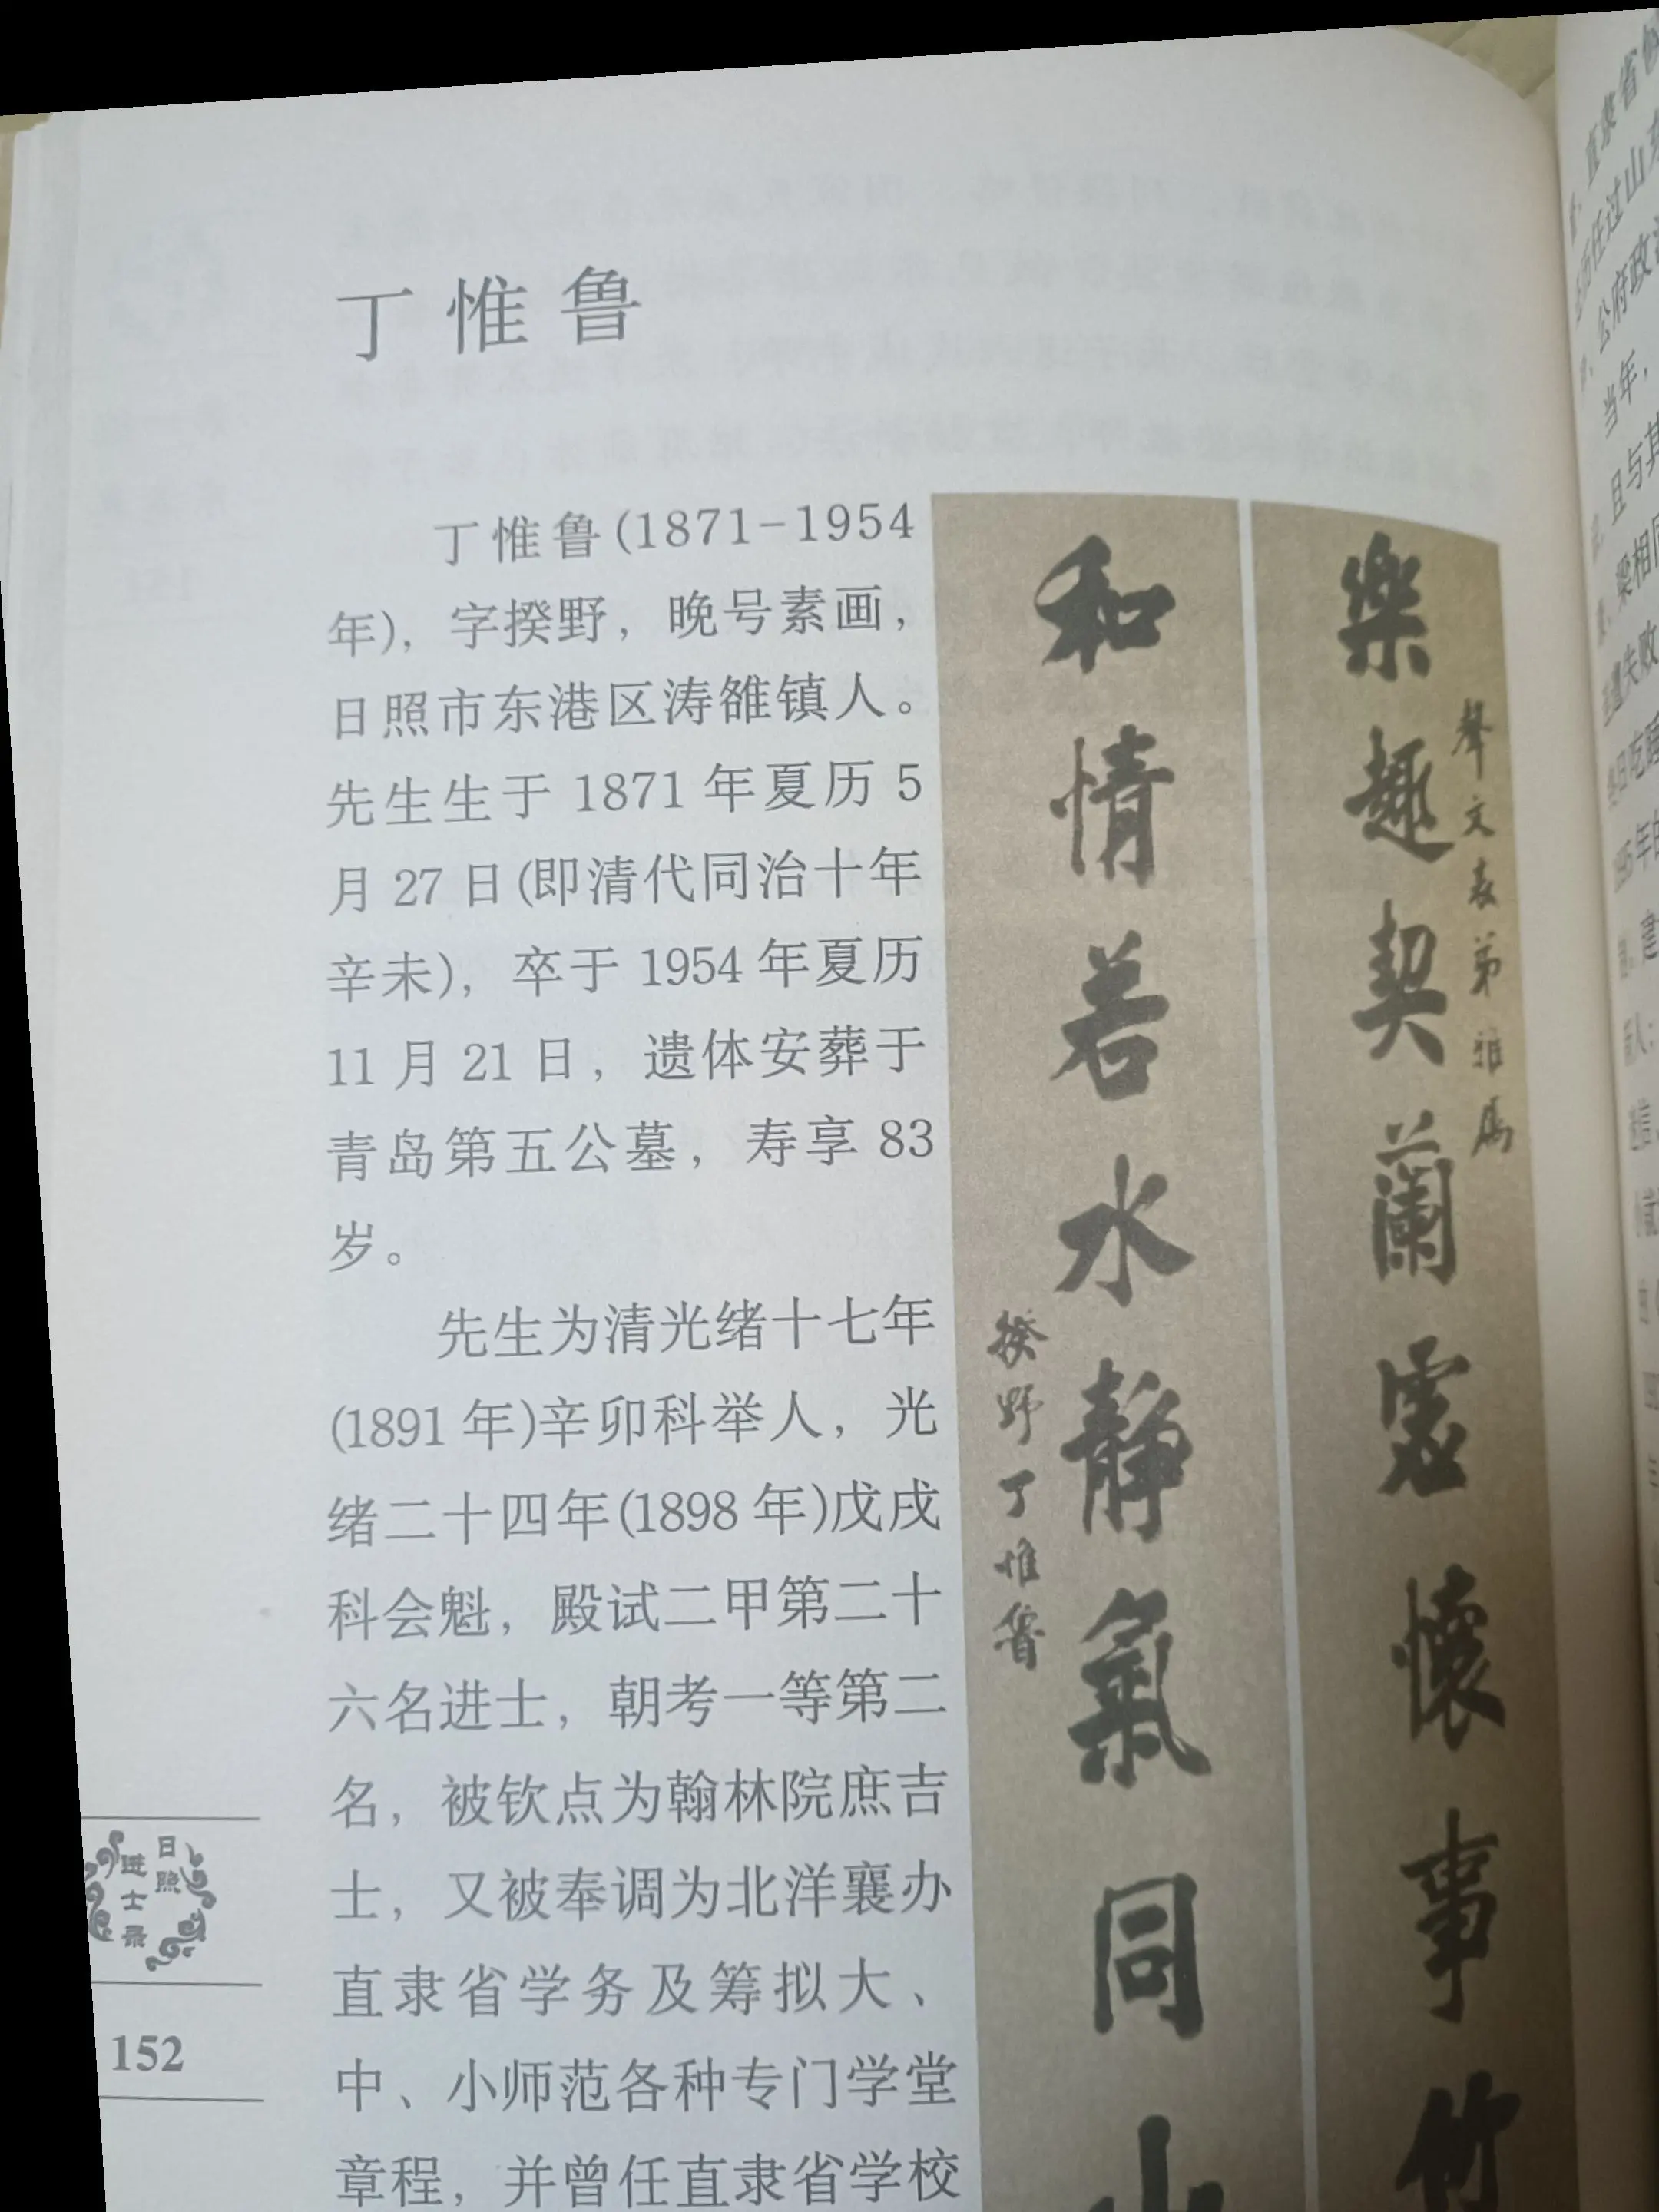 丁惟鲁
丁惟鲁(1871-1954
年)，字揆野，晚号素画，
日照市东港区涛雒镇人。
先生生于 1871 年夏历 5
月 27 日(即清代同治十年
辛未)，卒于 1954 年夏历
11 月 21 日，遗体安葬于
青岛第五公墓，寿享 83
岁。
先生为清光绪十七年
(1891 年)辛卯科举人，光
绪二十四年(1898 年)戊戌
科会魁，殿试二甲第二十
六名进士，朝考一等第二
名，被钦点为翰林院庶吉
士，又被奉调为北洋襄办
直隶省学务及筹拟大、
中、小师范各种专门学堂
章程，并曾任直隶省学校
聲文表弟雅屬
樂趣契蘭 懷事竹
和情若水靜氣同山
揆野丁惟魯
日照
进士录
152
直隶省
历任过山东
公府政
当年，
且与其
梁相同
遭失败
年
建
人；
信